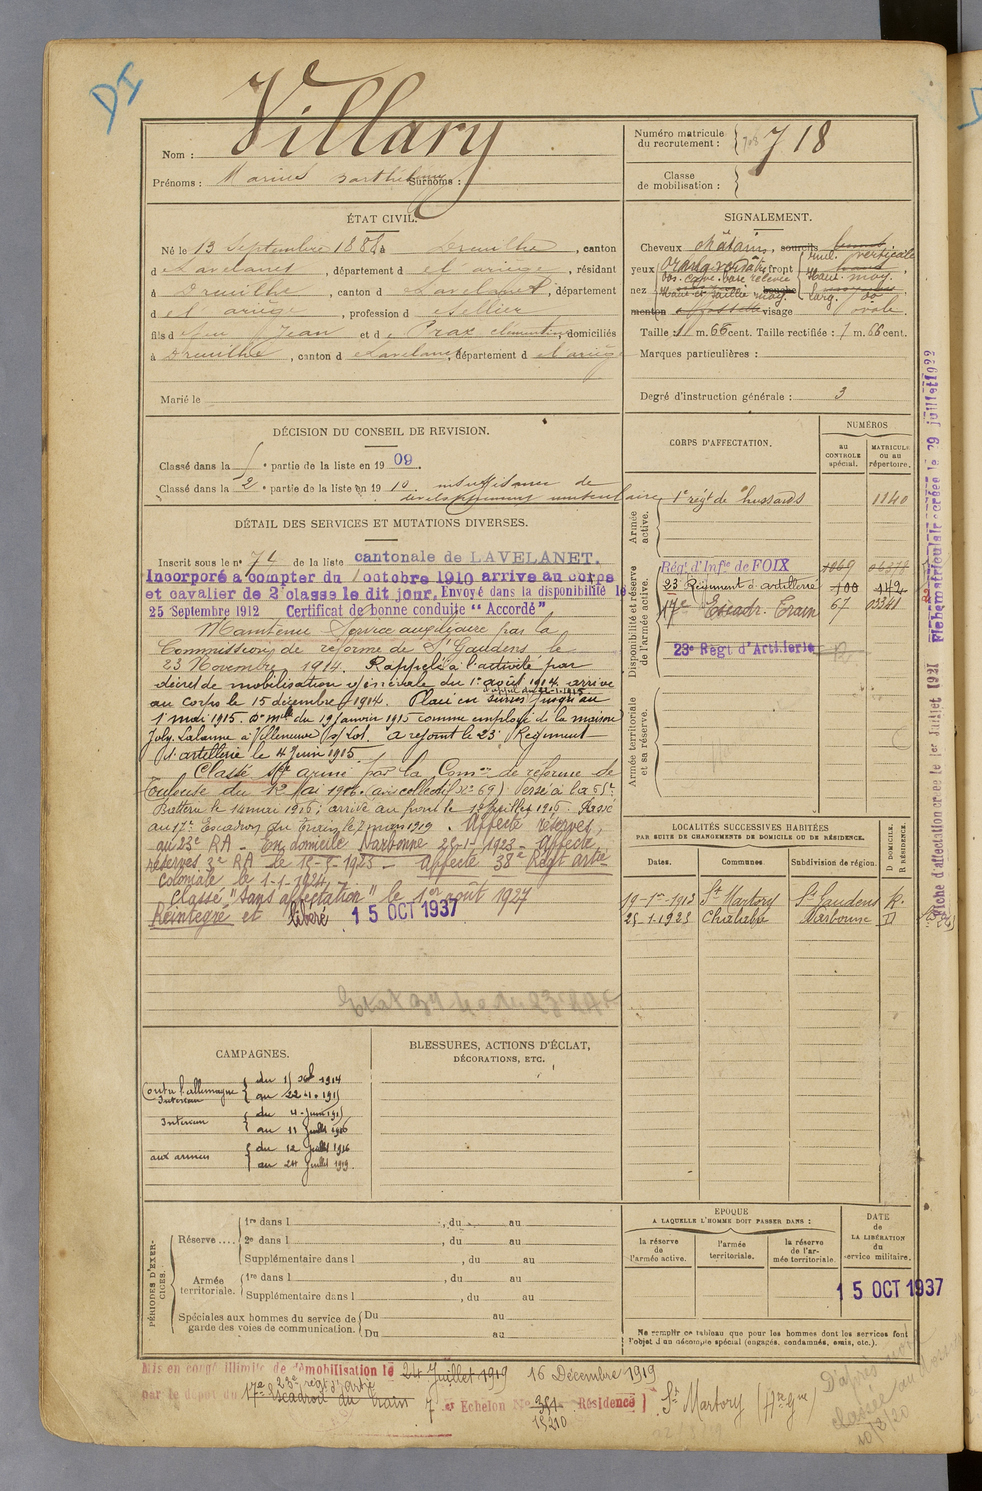 DI
Nom : Villary
Numéro matricule du recrutement : 718
Prénoms : Marius Barthélemy Surnoms :
Classe de mobilisation :
ÉTAT CIVIL.
Né le 13 Septembre 188 à Dreuilhe, canton
d Lavelanet, département d el'ariège, résidant
à Dreuilhe, canton d Lavelanet, département
d el'ariège, profession d Sellier
fils d feu Jean et d e Prax Clémentine, domiciliés
à Dreuilhe, canton d e Lavelanet, département d el'ariège
Marié le
SIGNALEMENT.
Cheveux châtain, sourcils
yeux orang verdâtre front incl. verticale
dos. cave. base relevée Haut. moy.
nez Haut et saillie moy. bouche larg. moy.
menton à fossette visage ovale.
Taille : 1 m. 66 cent. Taille rectifiée : 1 m. 66 cent.
Marques particulières :
Degré d'instruction générale : 3
DÉCISION DU CONSEIL DE REVISION.
Classé dans la 1e partie de la liste en 1909.
Classé dans la 2e partie de la liste en 1910 insuffisance de
développement musculaire
DÉTAIL DES SERVICES ET MUTATIONS DIVERSES.
Inscrit sous le n° 74 de la liste cantonale de LAVELANET.
Incorporé à compter du 1 octobre 1910 arrivé au corps
et cavalier de 2e classe le dit jour. Envoyé dans la disponibilité le
25 Septembre 1912 Certificat de bonne conduite "Accordé"
Maintenu Service auxiliaire par la
Commission de réforme de St Gaudens le
23 Novembre 1914. Rappelé à l'activité par
décret de mobilisation générale du 1er août 1914, arrivé
au corps le 15 décembre 1914. Placé en sursis jusqu'au
1er mai 1915. Don mlle du 19 Janvier 1915 comme employé de la maison
Joly Lalanne à Villeneuve s/ Lot. a rejoint le 23e Régiment
d'artillerie le 4 Juin 1915
Classé sce armé par la Comon de réforme de
Toulouse du 12 Mai 1916 (avis collectif N° 69) Versé à la 55e
Batterie le 14 mai 1916; arrivé au front le 12 juillet 1916. Passé
au 17e Escadron du Train le 2 mars 1919. Affecté réserves,
au 23e RA - En domicile Narbonne 25-1-1923 - Affecté
réserves 3e RA le 15-5-1923 - Affecté 38e Régt artie
coloniale le 1-1-1924.
Classé "sans affectation" le 1er août 1927
Réintégré et libéré 15 OCT 1937
CORPS D'AFFECTATION.
NUMÉROS
AU CONTROLE spécial.
MATRICULE OU AU répertoire.
Armée active.
1er régt de hussards 1140
Disponibilité et réserve de l'armée active.
Régt d'Infie de FOIX 1069
23 Régiment d'artillerie 100 142
17e Escadr. Train 67
23e Régt d'Artillerie
Armée territoriale et sa réserve.
LOCALITÉS SUCCESSIVES HABITÉES
PAR SUITE DE CHANGEMENTS DE DOMICILE OU DE RÉSIDENCE.
Dates. Communes. Subdivision de région. D DOMICILE. R RÉSIDENCE.
19-1er-1913 St Martory St Gaudens R.
25-1-1923 Chalabre Narbonne D
CAMPAGNES.
Contre l'allemagne
Intérieur { du 1/ 1914
au 22-1-1915
Intérieur { du 4-Juin 1915
au 11 Juillet 1916
aux armées { du 12 Juillet 1916
au 24 Juillet 1919.
BLESSURES, ACTIONS D'ÉCLAT,
DÉCORATIONS, ETC.
PÉRIODES D'EXERCICES.
Réserve .... { 1re dans l , du au
2e dans l , du au
Supplémentaire dans l , du au
Armée territoriale. { 1re dans l , du au
Supplémentaire dans l , du au
Spéciales aux hommes du service de garde des voies de communication. { Du au
Du au
EPOQUE
A LAQUELLE L'HOMME DOIT PASSER DANS :
la réserve de l'armée active.
l'armée territoriale.
la réserve de l'armée territoriale.
DATE de LA LIBÉRATION du service militaire.
15 OCT 1937
Ne remplir ce tableau que pour les hommes dont les services font
l'objet d'un décompte spécial (engagés, condamnés, omis, etc.).
Mis en congé illimité de démobilisation le 24 Juillet 1919 16 Décembre 1919
23e régt d'artie
par le dépôt du 17e Escadron du Train 7e Echelon No 351 Résidence St Martory (Hte Gne)
15210
D'après
classé au
10/2/20
Fiche d'affectation créée le 1er Juillet 1921
Fiche matriculaire créée le 29 juillet 1922